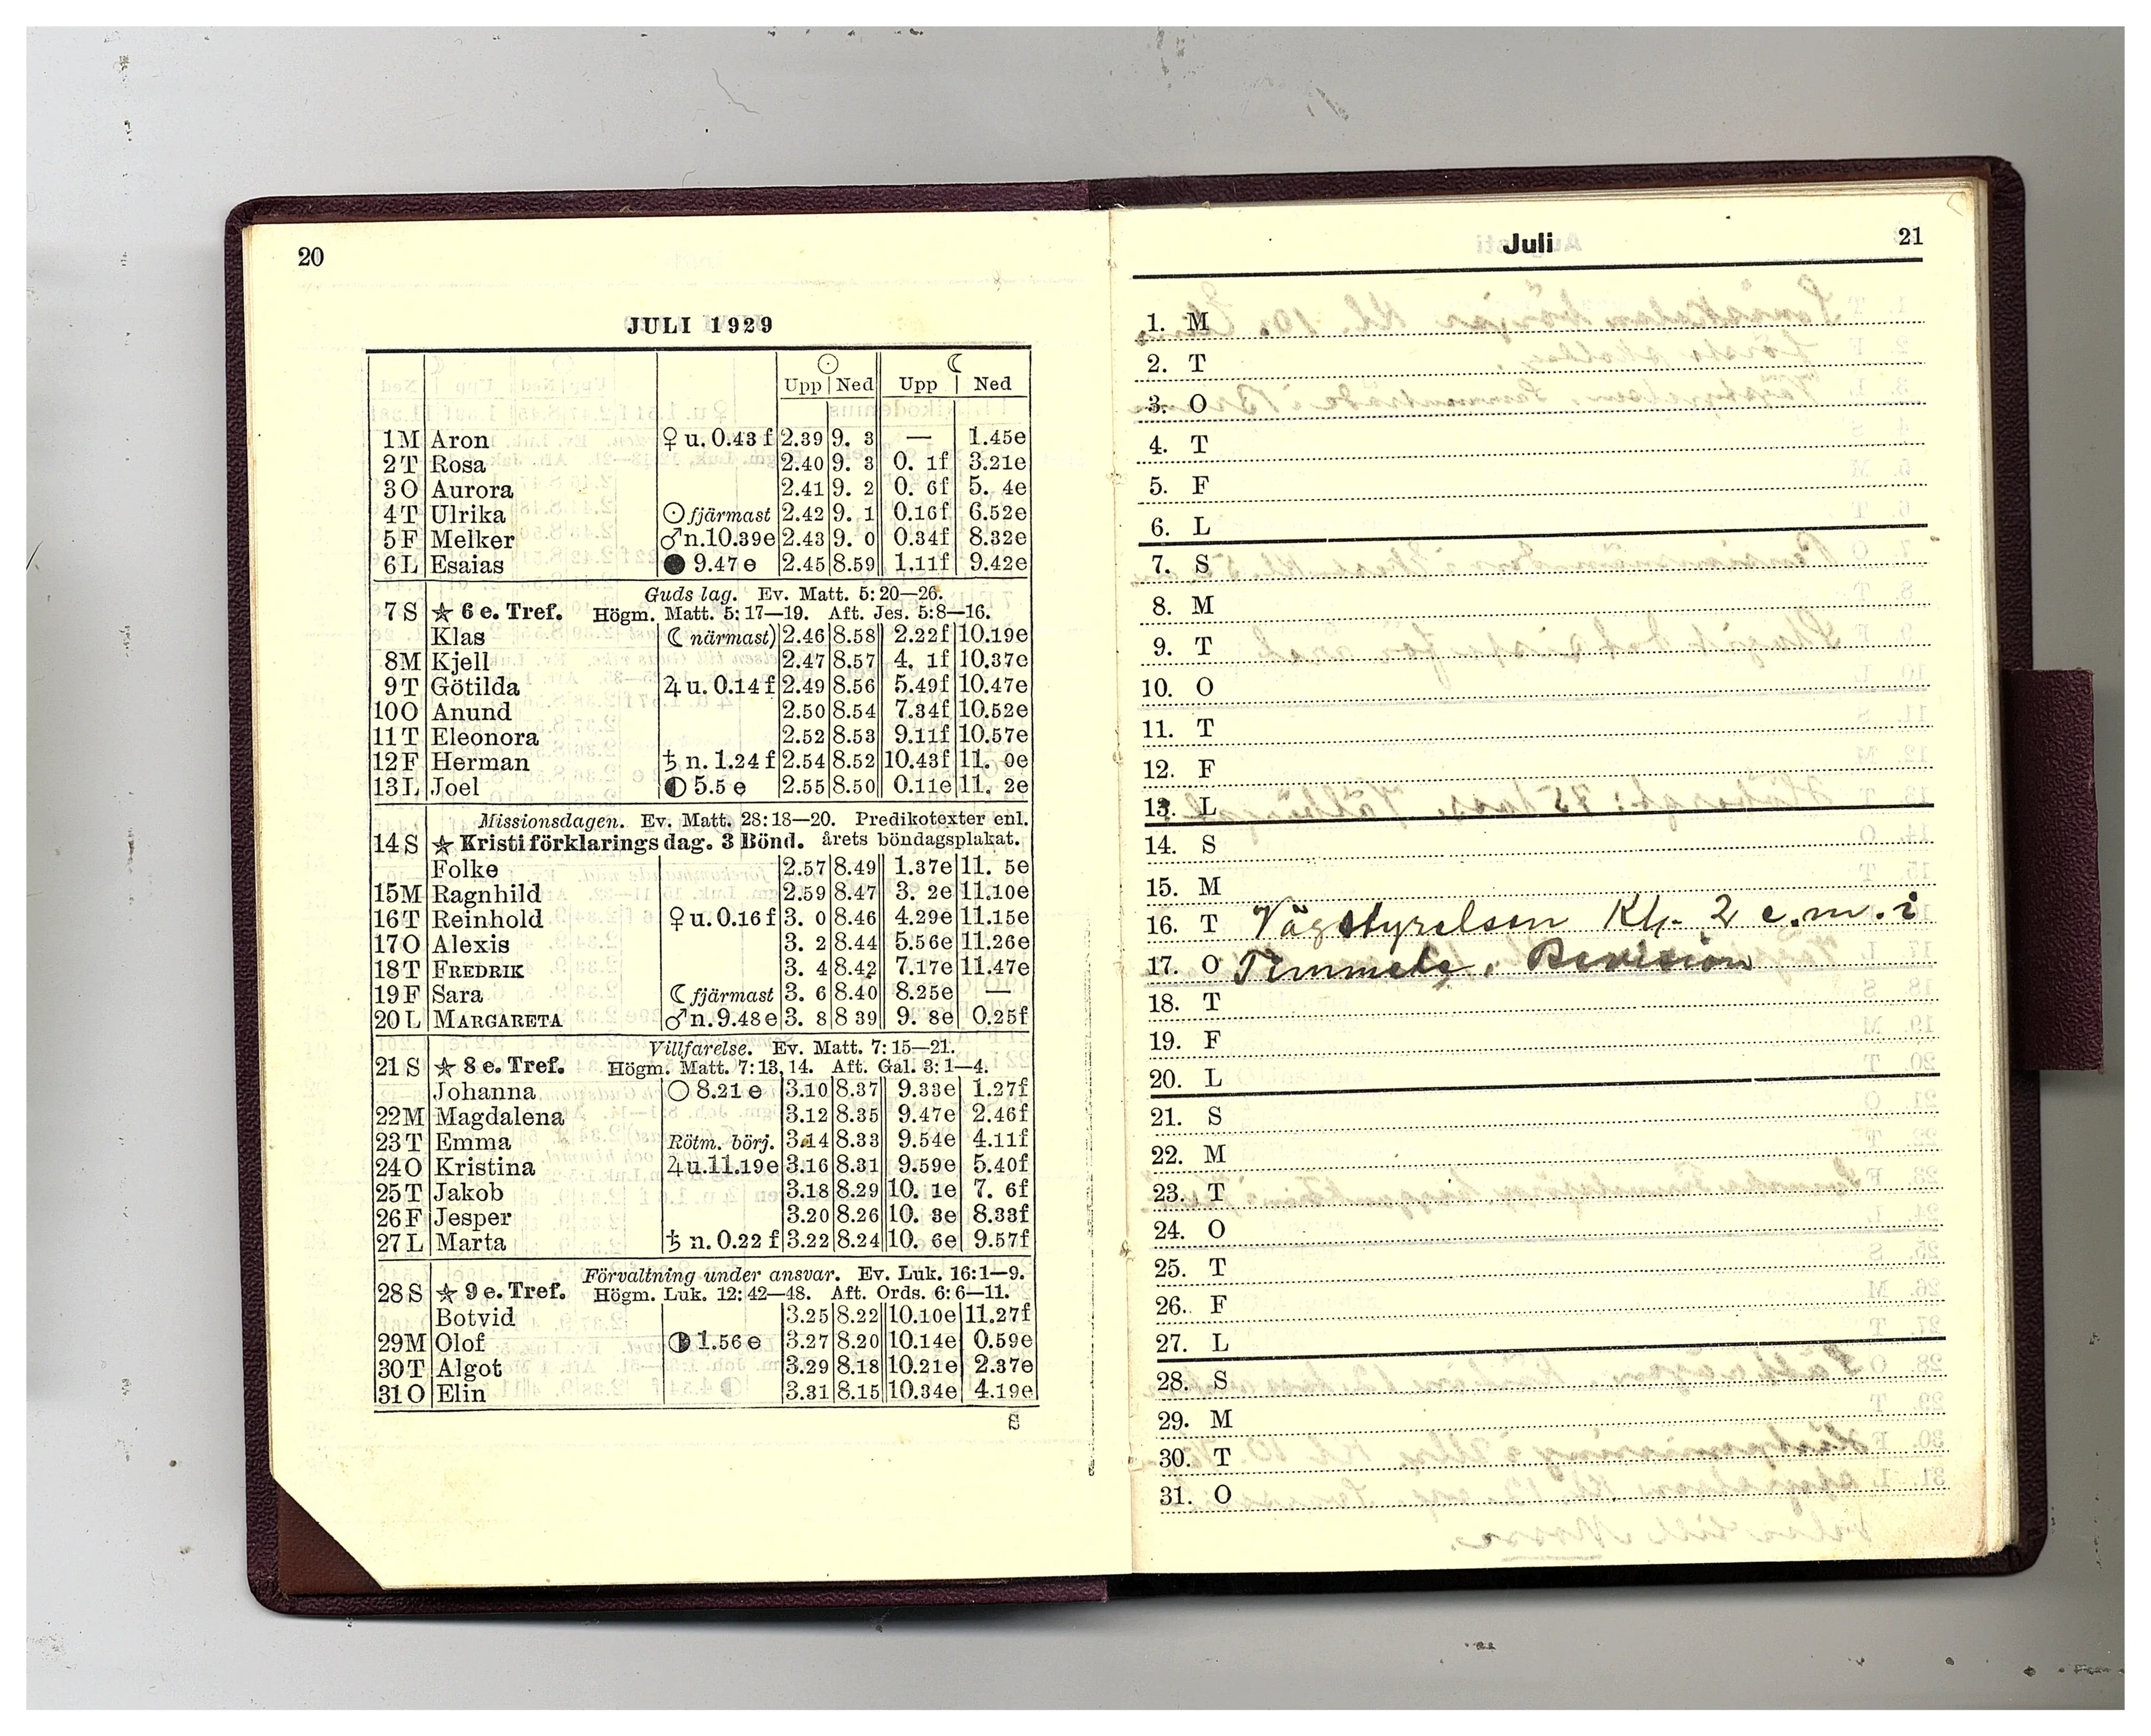 20
JULI 1929
☉ ☾
Upp Ned Upp Ned
1 M Aron ♀ u. 0.43 f 2.39 9. 3 — 1.45e
2 T Rosa 2.40 9. 3 0. 1f 3.21e
3 O Aurora 2.41 9. 2 0. 6f 5. 4e
4 T Ulrika ☉ fjärmast 2.42 9. 1 0.16f 6.52e
5 F Melker ♂ n. 10.39e 2.43 9. 0 0.34f 8.32e
6 L Esaias ● 9.47 e 2.45 8.59 1.11f 9.42e
Guds lag. Ev. Matt. 5: 20—26.
7 S ☆ 6 e. Tref. Högm. Matt. 5: 17—19. Aft. Jes. 5:8—16.
Klas ☾ närmast) 2.46 8.58 2.22f 10.19e
8 M Kjell 2.47 8.57 4. 1f 10.37e
9 T Götilda ♃ u. 0.14 f 2.49 8.56 5.49f 10.47e
10 O Anund 2.50 8.54 7.34f 10.52e
11 T Eleonora 2.52 8.53 9.11f 10.57e
12 F Herman ♄ n. 1.24 f 2.54 8.52 10.43f 11. 0e
13 L Joel ◐ 5.5 e 2.55 8.50 0.11e 11. 2e
Missionsdagen. Ev. Matt. 28: 18—20. Predikotexter enl.
14 S ☆ Kristi förklarings dag. 3 Bönd. årets böndagsplakat.
Folke 2.57 8.49 1.37e 11. 5e
15 M Ragnhild 2.59 8.47 3. 2e 11.10e
16 T Reinhold ♀ u. 0.16 f 3. 0 8.46 4.29e 11.15e
17 O Alexis 3. 2 8.44 5.56e 11.26e
18 T FREDRIK 3. 4 8.42 7.17e 11.47e
19 F Sara ☾ fjärmast 3. 6 8.40 8.25e —
20 L MARGARETA ♂ n. 9.48 e 3. 8 8 39 9. 8e 0.25f
Villfarelse. Ev. Matt. 7: 15—21.
21 S ☆ 8 e. Tref. Högm. Matt. 7: 13, 14. Aft. Gal. 3: 1—4.
Johanna ○ 8.21 e 3.10 8.37 9.33e 1.27f
22 M Magdalena 3.12 8.35 9.47e 2.46f
23 T Emma Rötm. börj. 3.14 8.33 9.54e 4.11f
24 O Kristina ♃ u. 11.19 e 3.16 8.31 9.59e 5.40f
25 T Jakob 3.18 8.29 10. 1e 7. 6f
26 F Jesper 3.20 8.26 10. 3e 8.33f
27 L Marta ♄ n. 0.22 f 3.22 8.24 10. 6e 9.57f
Förvaltning under ansvar. Ev. Luk. 16: 1—9.
28 S ☆ 9 e. Tref. Högm. Luk. 12: 42—48. Aft. Ords. 6: 6—11.
Botvid 3.25 8.22 10.10e 11.27f
29 M Olof ◑ 1.56 e 3.27 8.20 10.14e 0.59e
30 T Algot 3.29 8.18 10.21e 2.37e
31 O Elin 3.31 8.15 10.34e 4.19e
S
Juli 21
1. M
2. T
3. O
4. T
5. F
6. L
7. S
8. M
9. T
10. O
11. T
12. F
13. L
14. S
15. M
16. T Vägstyrelsen Kl. 2 e.m. i
17. O Timmele, Revision
18. T
19. F
20. L
21. S
22. M
23. T
24. O
25. T
26. F
27. L
28. S
29. M
30. T
31. O